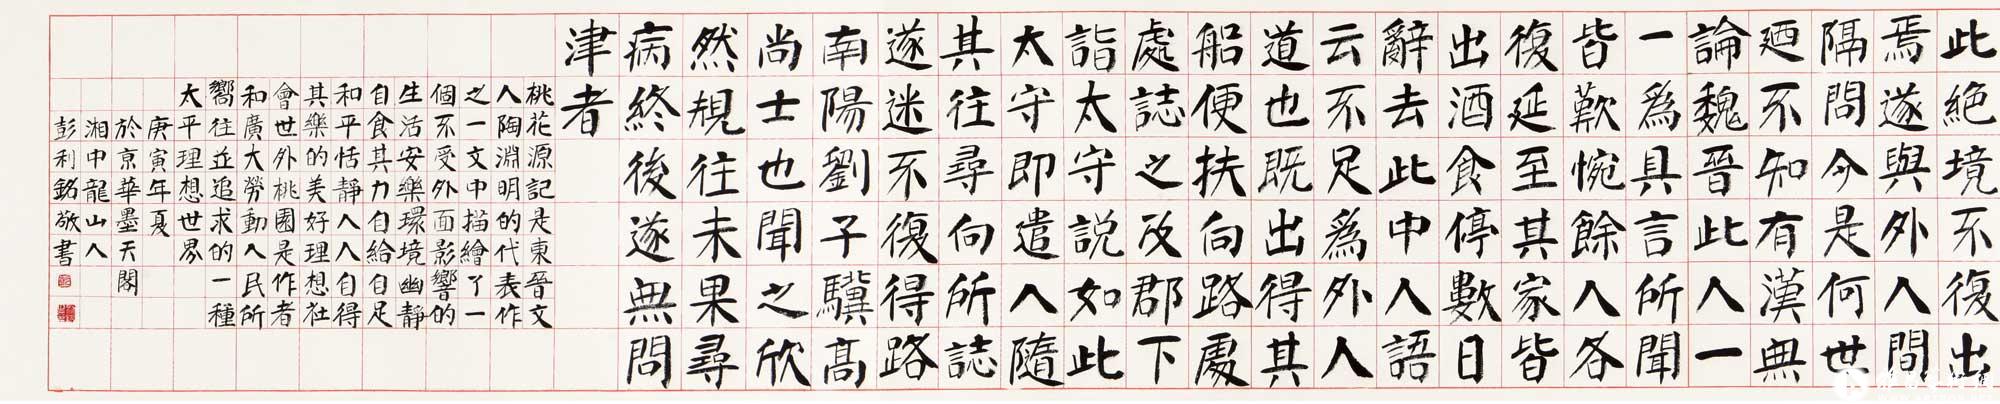 此絶境不復出
焉遂與外人間
隔問今是何世
廼不知有漢無
論魏晉此人一
一爲具言所聞
皆歎惋餘人各
復延至其家皆
出酒食停數日
辭去此中人語
云不足爲外人
道也既出得其
船便扶向路處
處誌之及郡下
詣太守説如此
太守即遣人隨
其往尋向所誌
遂迷不復得路
南陽劉子驥高
尚士也聞之欣
然規往未果尋
病終後遂無問
津者
桃花源記是東晉文
人陶淵明的代表作
之一文中描繪了一
個不受外面影響的
生活安樂環境幽静
自食其力自給自足
和平恬静人人自得
其樂的美好理想社
會世外桃園是作者
和廣大勞動人民所
嚮往並追求的一種
太平理想世界
庚寅年夏
於京華墨天閣
湘中龍山人
彭利銘敬書